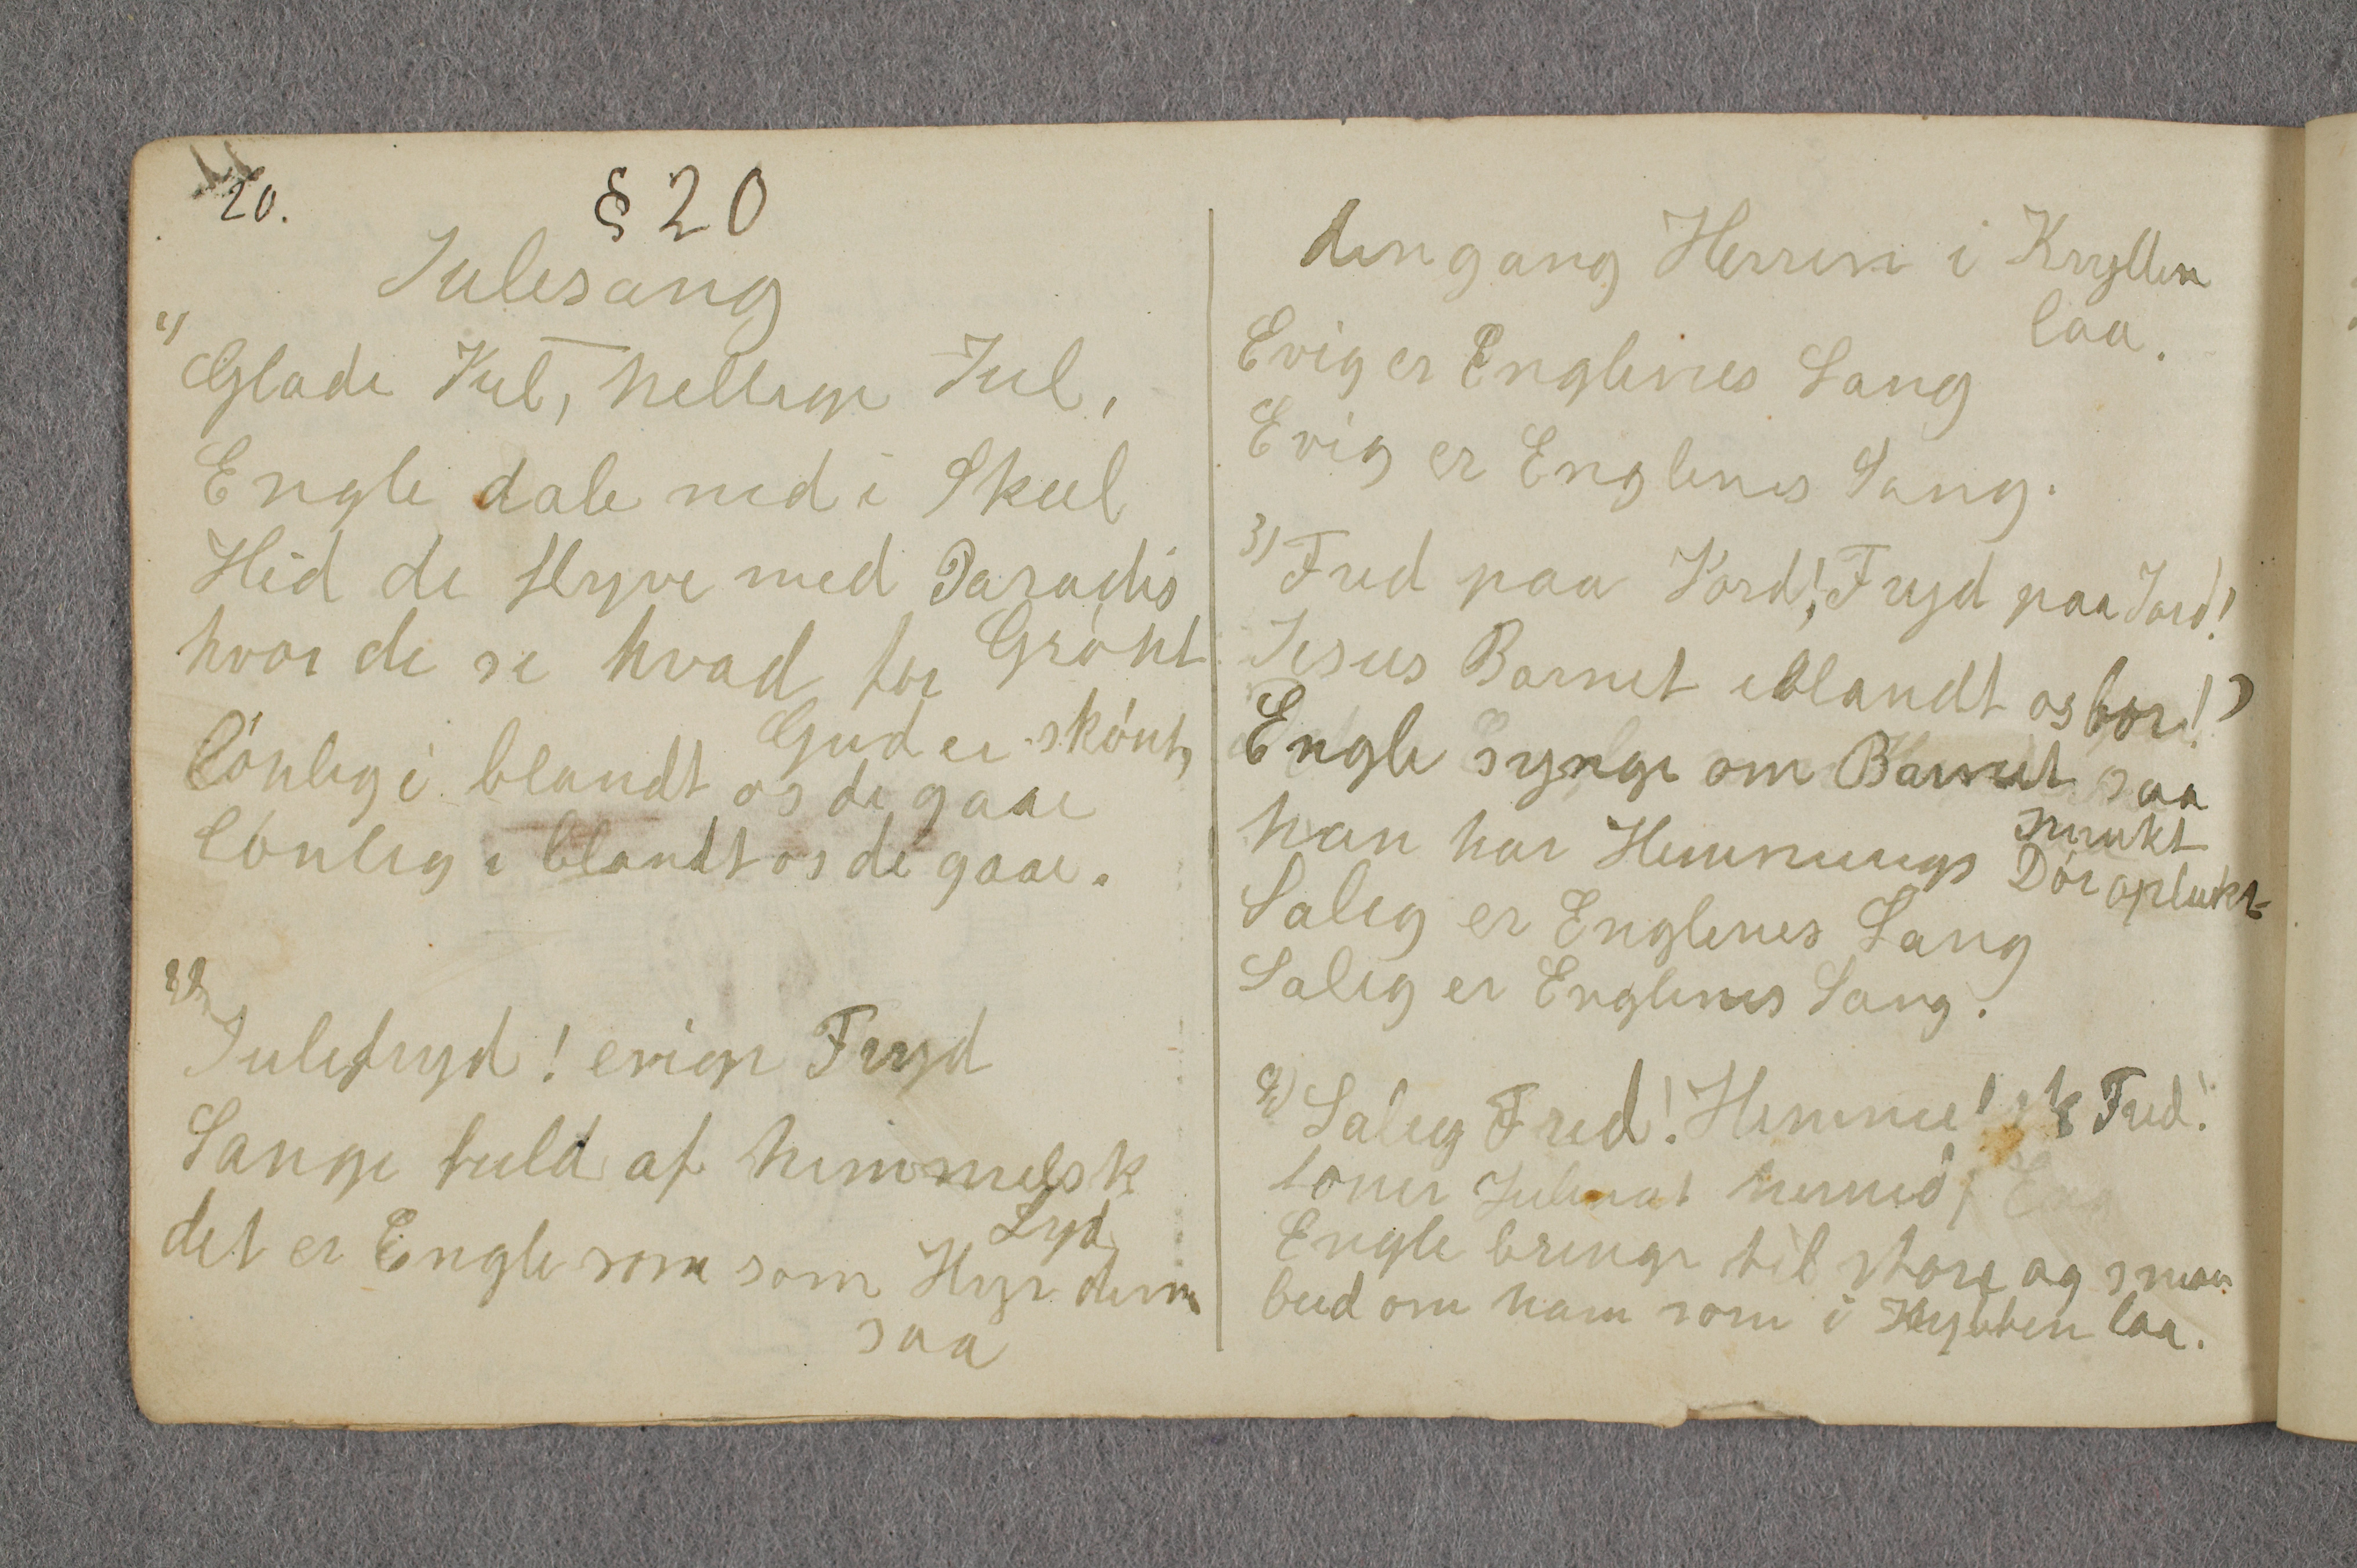 20.
§ 20
Julesang
1)
Glade Jul, hellige Jul,
Engle dale ned i Skul
Hid de flyve med Paradis
Grónt
hvor de se hvad for
Gud er skónt,
lónlig i blandt os de gaae
lónlig i blandt os de gaae.
2)
Julefryd! evige Fryd
Sange fuld af himmelsk
Lyd
det er Engle som som Hyrdern
saa
dengang Herren i Kryllen
laa.
Evig er Englenes Sang
Evig er Englenes Sang.
3) Fred paa Jord! Fryd paa Jord!
Jesus Barnet iblandt os bor!
Engle synge om Barnet saa
smukt
han har Himmeriges Dór oplukt
Salig er Englenes Sang
Salig er Englenes Sang.
4) Salig Fred! Himmelsk Fred!
toner Julenat herned,
Engle bringe til store og smaa
bud om ham som i Krybben laa.